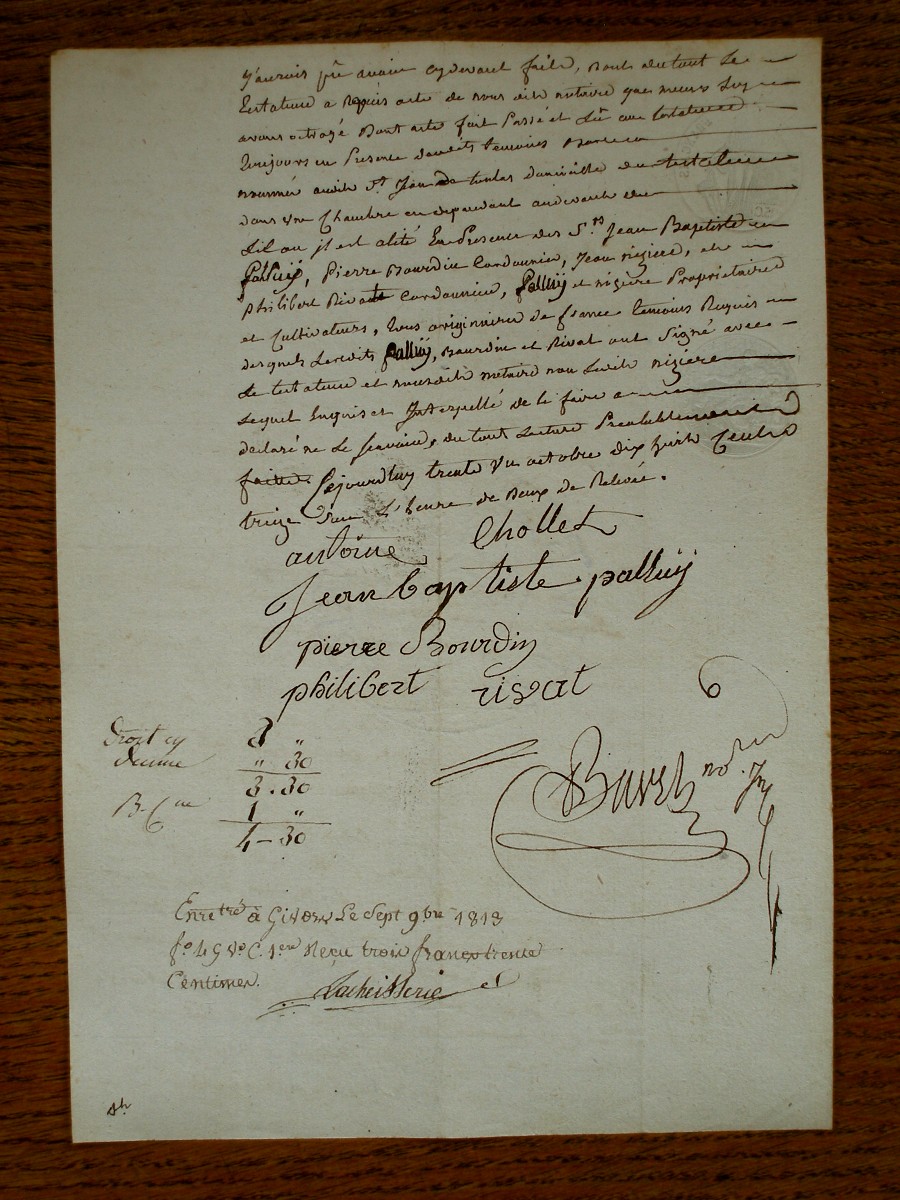 J'aurois pû avoir cydevant faite, dont du tout Le
testateur a Requis acte de nous dit notaire que nous Luy
avons octroyé Dont acte fait Passé et Lû au testateur
Toujours en Presence desdits temoins
audit St. Jean de toulas domicille du testateur
dans une Chambre en dependant audevant du
Lit ou il est alité En Presence des Srs. Jean Baptiste
Palluÿ, Pierre Bourdin Cordonnier, Jean nigiere, et
Philibert Rivat Cordonnier, Palluÿ et nigiere Propriétaires
et Cultivateurs, tous originaires de france temoins Requis
desquels Lesdits Palluÿ, Bourdin et Rivat ont Signé avec
Le testateur et nousdit notaire non Ledit nigiere
Lequel Enquis et Interpellé de le faire a
declaré ne Le Scavoir, du tout Lecture Prealablement
faitte Cejourdhuy trente un octobre dix huit Cents
treize Sur L'heure de Deux de Relevée.
antoine Chollet
Jean baptiste palluÿ
pierre Bourdin
philibert rivat
Droit cy 3 "
decime " 30
3 . 30
1 "
4 - 30
Enretré à Givors Le Sept 9bre 1813
fo. 49 Vo C. 1ere Reçu trois francs trente
Centimes.